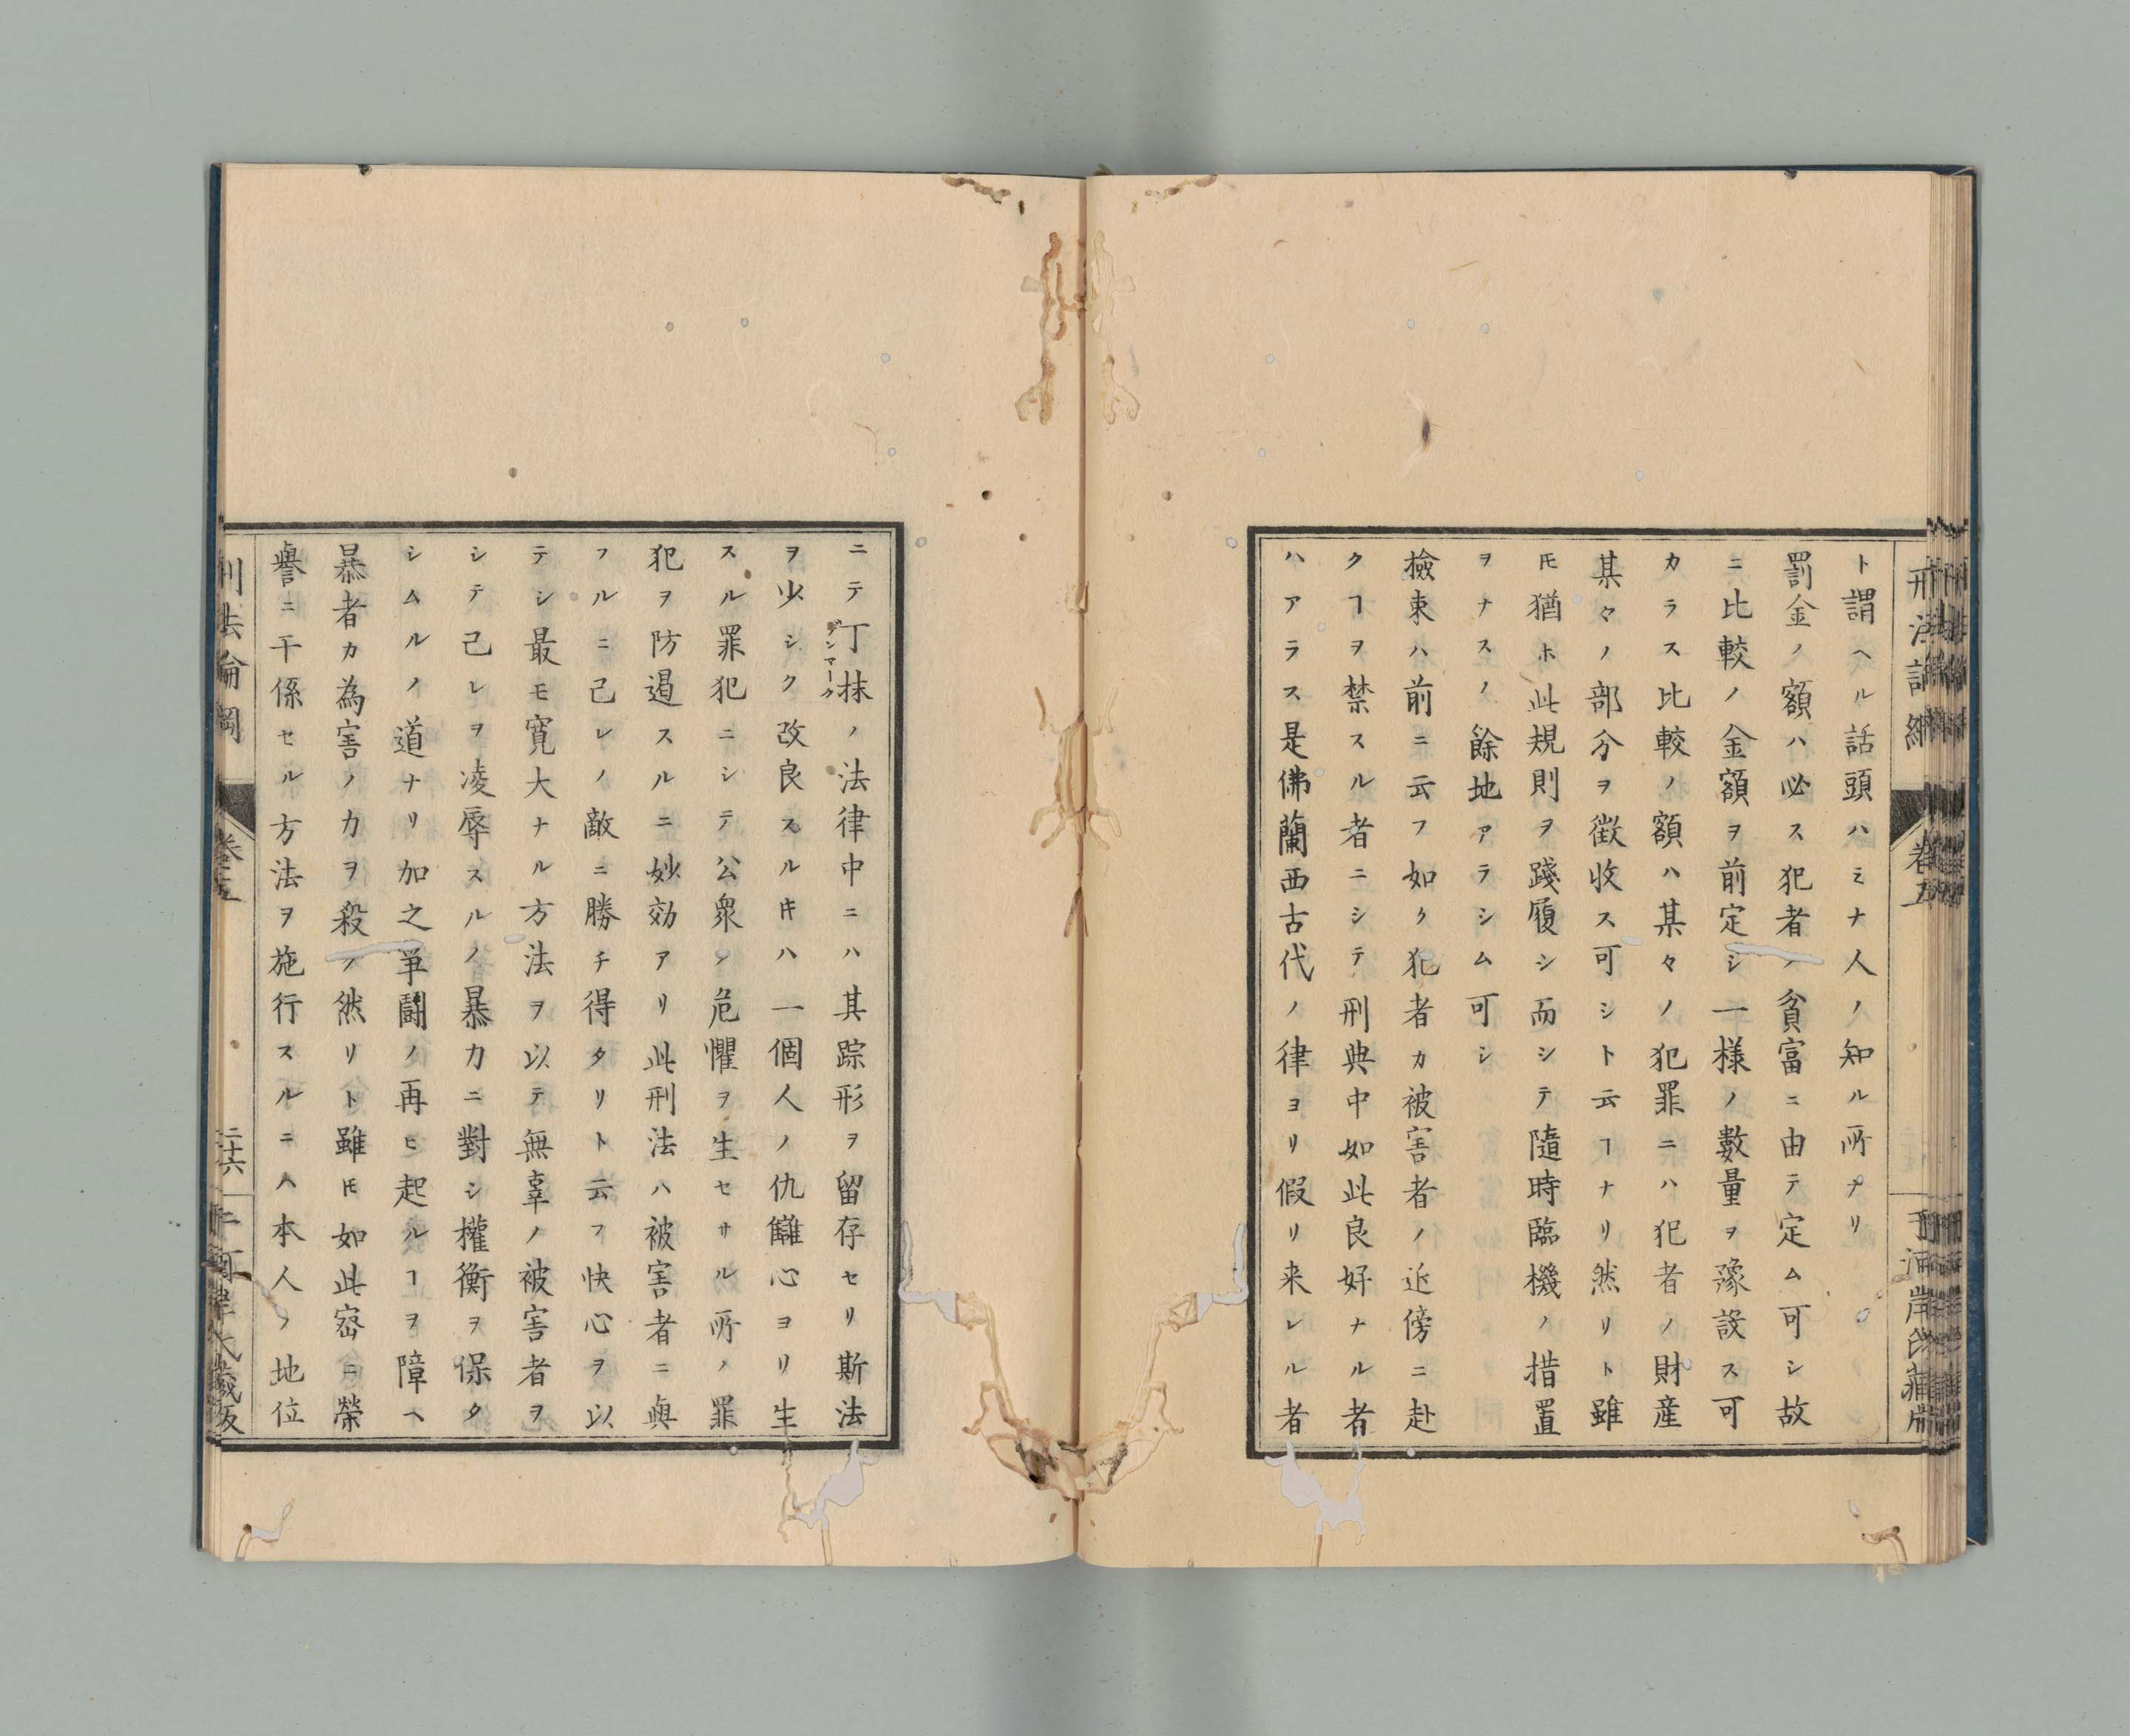 ト謂ヘル話頭ハミナ人ノ知ル所ナリ
罰金ノ額ハ必ス犯者ノ貧富ニ由テ定ム可シ故
ニ比較ノ金額ヲ前定シ一様ノ數量ヲ豫設ス可
カラス比較ノ額ハ某々ノ犯罪ニハ犯者ノ財産
某々ノ部分ヲ徴收ス可シト云ヿナリ然リト雖
𪜈猶ホ此規則ヲ踐履シ而シテ隨時臨機ノ措置
ヲナスノ餘地アラシム可シ
檢束ハ前ニ云フ如ク犯者カ被害者ノ近傍ニ赴
クヿヲ禁スル者ニシテ刑典中如此良好ナル者
ハアラス是佛蘭西古代ノ律ヨリ假リ来レル者
ニテ丁抹ノ法律中ニハ其踪形ヲ留存セリ斯法
デンマーク
ヲ少シク改良スル𪜈ハ一個人ノ仇讎心ヨリ生
スル罪犯ニシテ公衆ノ危懼ヲ生セサル所ノ罪
犯ヲ防遏スルニ妙効アリ此刑法ハ被害者ニ與
フルニ己レノ敵ニ勝チ得タリト云フ快心ヲ以
テシ最モ寛大ナル方法ヲ以テ無辜ノ被害者ヲ
シテ己レヲ凌辱スルノ暴力ニ對シ權衡ヲ保タ
シムルノ道ナリ加之爭鬪ノ再ヒ起ルヿヲ障ヘ
暴者カ為害ノ力ヲ殺ク然リト雖𪜈如此密ニ榮
譽ニ干係セル方法ヲ施行スルニハ本人ノ地位
刑法論綱
卷五
二十六